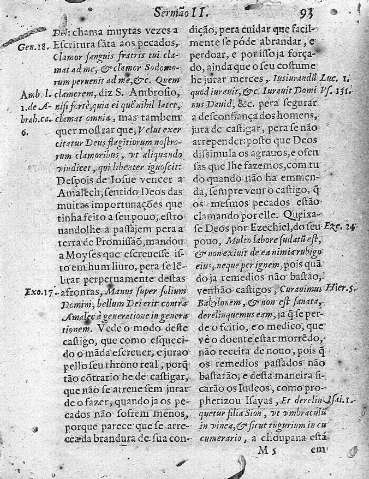 Sermão II.
93
Dei: chama muytas vezes a
Gen. 18.
Escritura sãta aos pecados,
Clamor sanguis fratris tui cla-
mat ad me, & clamor Sodomo-
rum peruenit ad me, &c. Quem
Amb. l.
clamorem, diz S. Ambrosio,
1. de A-
nisi fortè, quia ei quê nihil latet,
brah. ca.
clamat omnia, mas tambem
6.
quer mostrar que, Velut exer-
citatur Deus flagitiorum nostro-
rum clamoribus, vt aliquando
vindicet, qui libenter ignoscit.
Despois de Iosue vencer a
Amalech, sentido Deos das
muitas importunações que
tinha feito a seu pouo, estro-
uandolhe a passajem pera a
terra de Promissão, mandou
a Moyses que escreuesse is-
to em hum liuro, pera se lê-
brar perpetuamente destas
Exo. 17.
afrontas, Manus super solium
Domini, bellum Dei erit contra
Amalec à generatione in genera
tionem. Vede o modo deste
castigo, que como esqueci-
do o mãda escreuer, e jura o
pello seu throno real, porq̃
tão côtrario he de castigar,
que não se atreue sem jurar
de o fazer, quando ja os pe-
cados não sofrem menos,
porque parece que se arre-
ceada brandura de sua con-
dição, pera cuidar que facil-
mente se póde abrandar, e
perdoar, e por isso ja força-
do, ainda que o seu costume
he jurar merces, Iusiurandũ
Luc. 1.
quod iurauit, &c. Iurauit Domi
Ps. 131.
nus Dauid, &c. pera segurar
a desconfiança dos homens,
jura de castigar, pera se não
arrepender: posto que Deos
dissimula os agrauos, e ofen
sas que lhe fazemos, com tu
do quando não ha emmen-
da, sempre vem o castigo, q̃
os mesmos pecados estão
clamando por elle. Queixa-
se Deos por Ezechiel, do seu
Eze. 24
pouo, Multo labore sudatũ est,
& non exiuit de ea nimia rubigo
eius, neque per ignem, pois quã
do ja remedios não bastão,
venhão castigos, Curauimus
Hier. 5.
Babylonem, & non est sanata,
derelinquemus eam, ja q̃ se per-
de o feitio, e o medico, que
vê o doente estar morrêdo,
não receita de nouo, pois q̃
os remedios passados não
bastarão, e desta maneira si-
carão os Iudeos, como pro-
phetizou Isayas, Et derelin
Isai. 1.
quetur filia Sion, vt vmbraculũ
in vinea, & sicut tugurium in cu
cumerario, a choupana está
M 5
em